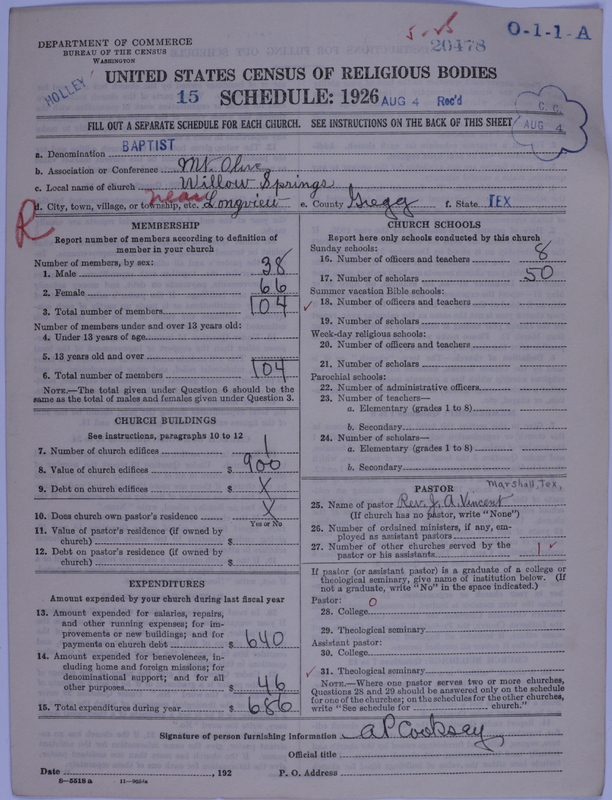 5-25
O-1-1-A
20478
DEPARTMENT OF COMMERCE
BUREAU OF THE CENSUS
WASHINGTON
HOLLEY
UNITED STATES CENSUS OF RELIGIOUS BODIES
15 SCHEDULE: 1926 AUG 4 Rec'd
C. C.
AUG 4
FILL OUT A SEPARATE SCHEDULE FOR EACH CHURCH. SEE INSTRUCTIONS ON THE BACK OF THIS SHEET
a. Denomination BAPTIST
b. Association or Conference Mt. Olive
c. Local name of church Willow Springs
near
d. City, town, village, or township, etc. Longview e. County Gregg f. State TEX
R
MEMBERSHIP
Report number of members according to definition of
member in your church
Number of members, by sex:
1. Male 38
2. Female 66
3. Total number of members 104
Number of members under and over 13 years old:
4. Under 13 years of age
5. 13 years old and over
6. Total number of members 104
NOTE.—The total given under Question 6 should be the
same as the total of males and females given under Question 3.
CHURCH BUILDINGS
See instructions, paragraphs 10 to 12
7. Number of church edifices 1
8. Value of church edifices $ 900
9. Debt on church edifices $ X
10. Does church own pastor's residence X
Yes or No
11. Value of pastor's residence (if owned by
church) $
12. Debt on pastor's residence (if owned by
church) $
EXPENDITURES
Amount expended by your church during last fiscal year
13. Amount expended for salaries, repairs,
and other running expenses; for im-
provements or new buildings; and for
payments on church debt $ 640
14. Amount expended for benevolences, in-
cluding home and foreign missions; for
denominational support; and for all
other purposes $ 46
15. Total expenditures during year $ 686
CHURCH SCHOOLS
Report here only schools conducted by this church
Sunday schools:
16. Number of officers and teachers 8
17. Number of scholars 50
Summer vacation Bible schools:
18. Number of officers and teachers
19. Number of scholars
Week-day religious schools:
20. Number of officers and teachers
21. Number of scholars
Parochial schools:
22. Number of administrative officers
23. Number of teachers—
a. Elementary (grades 1 to 8)
b. Secondary
24. Number of scholars—
a. Elementary (grades 1 to 8)
b. Secondary
PASTOR Marshall, Tex.
25. Name of pastor Rev. J. A. Vincent
(If church has no pastor, write "None")
26. Number of ordained ministers, if any, em-
ployed as assistant pastors
27. Number of other churches served by the
pastor or his assistants 1
If pastor (or assistant pastor) is a graduate of a college or
theological seminary, give name of institution below. (If
not a graduate, write "No" in the space indicated.)
Pastor: 0
28. College
29. Theological seminary
Assistant pastor:
30. College
31. Theological seminary
NOTE.—Where one pastor serves two or more churches,
Questions 28 and 29 should be answered only on the schedule
for one of the churches; on the schedules for the other churches,
write "See schedule for church."
Signature of person furnishing information A P Cooksey
Official title
Date , 192 P. O. Address
S—5518 a